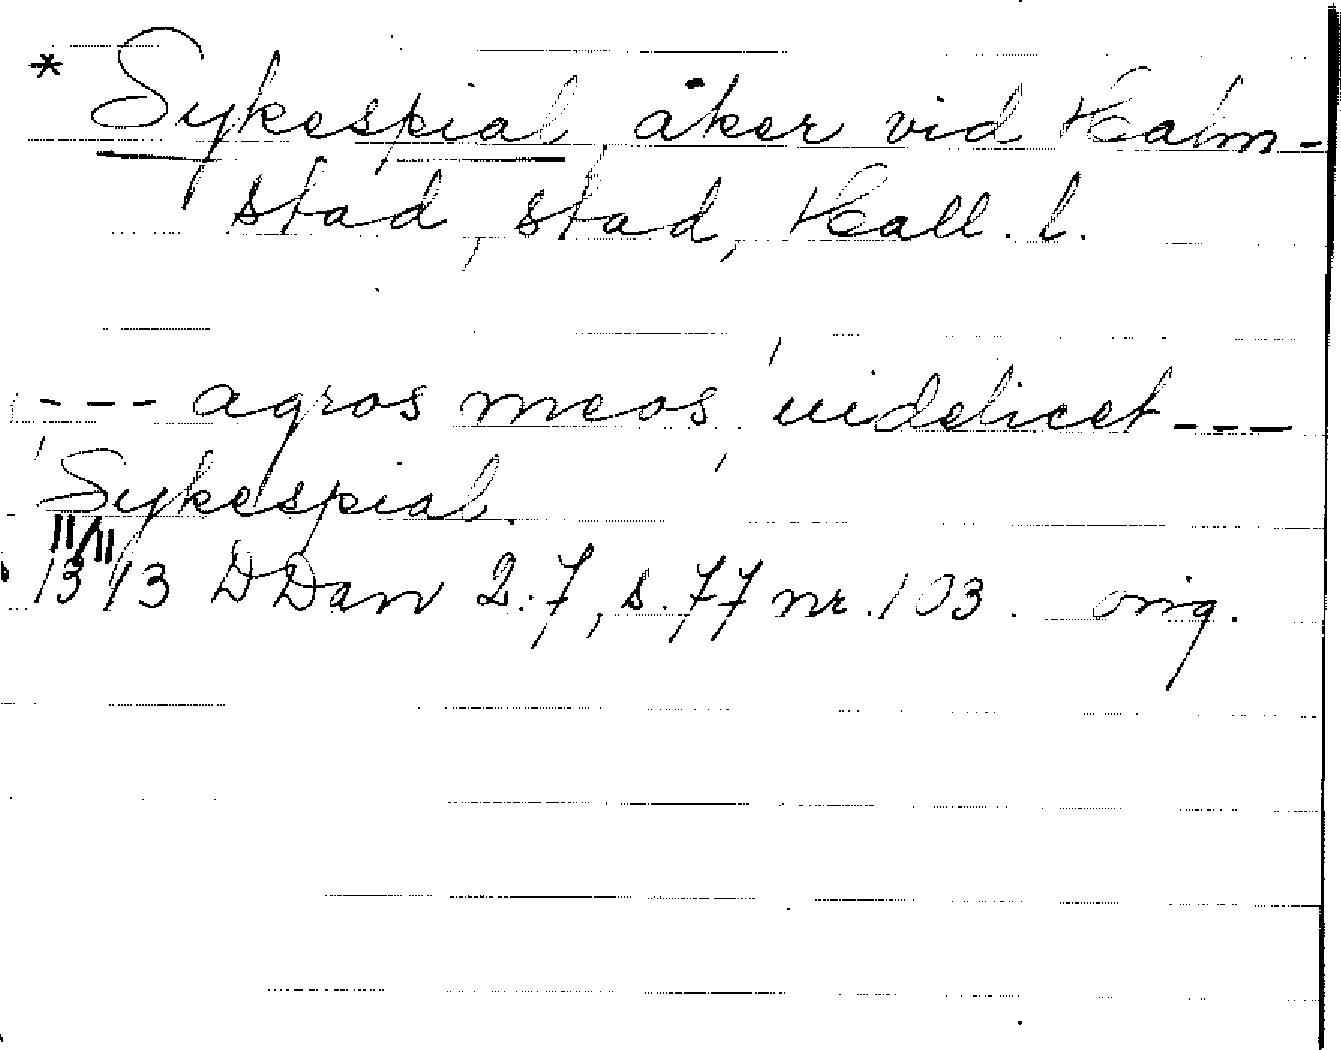 * Sykespial, åker vid Halm-
stad, stad, Hall. l.
--- agros meos, uidelicet ---
Sykespial.
11/11
1313 DDan 2:7, s. 77 nr. 103. orig.